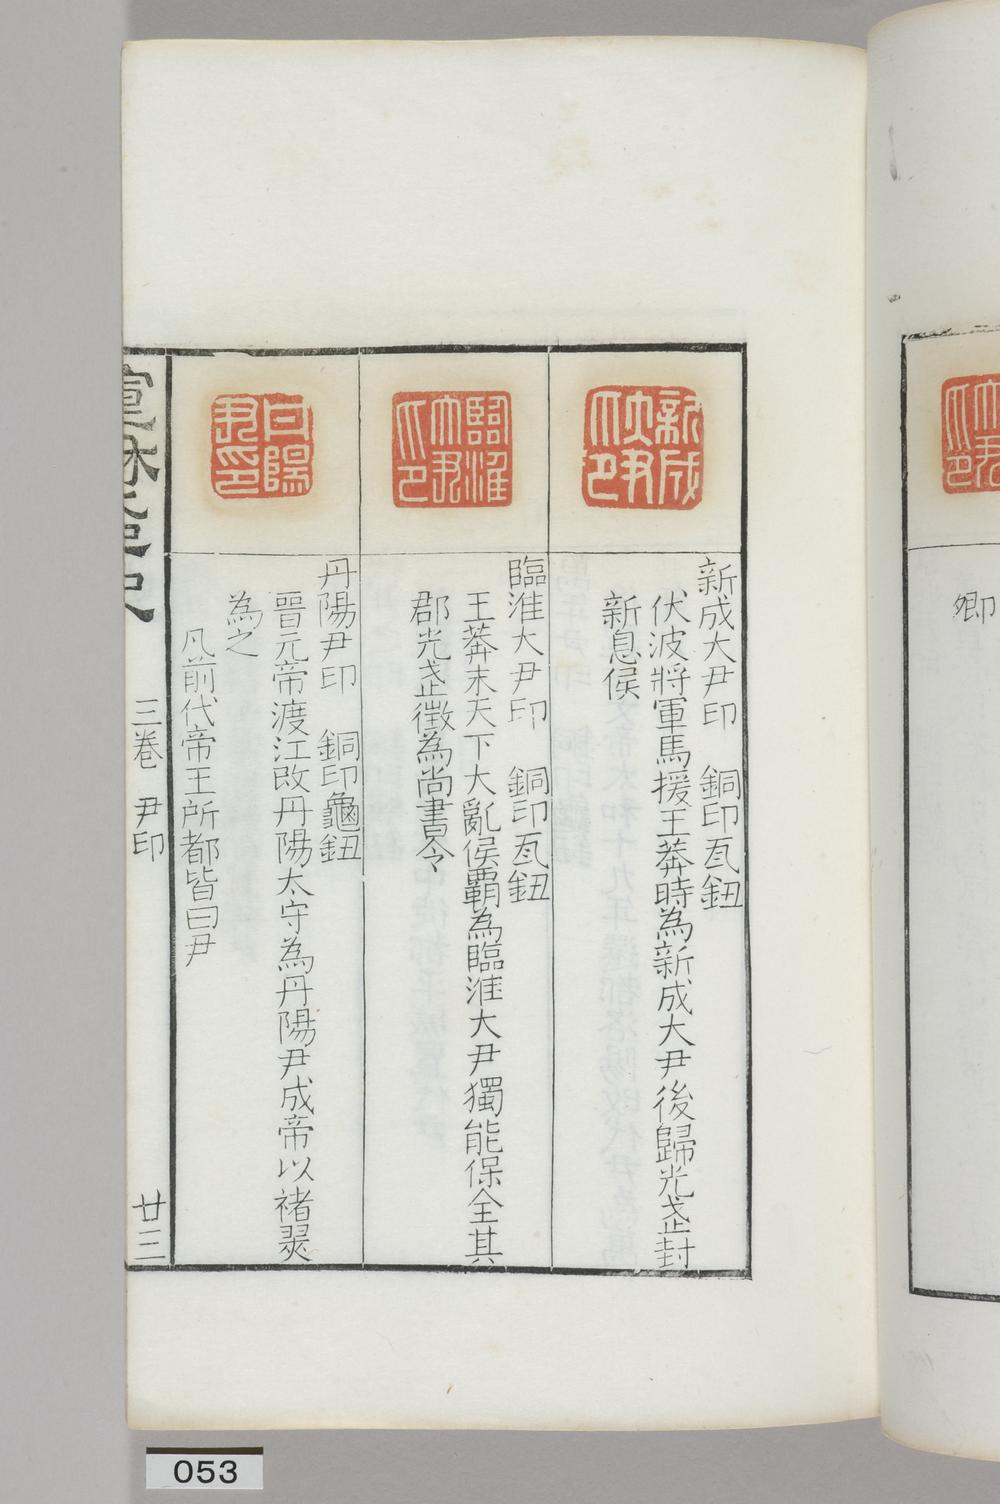 卿
新成大尹印
新成大尹印　銅印瓦鈕
伏波將軍馬援王莽時為新成大尹後歸光武封
新息侯
臨淮大尹印
臨淮大尹印　銅印瓦鈕
王莽末天下大亂侯覇為臨淮大尹獨能保全其
郡光武徵為尚書令
丹陽尹印
丹陽尹印　銅印龜鈕
晉元帝渡江改丹陽太守為丹陽尹成帝以褚翜
為之
凡前代帝王所都皆曰尹
三卷　尹印
廿三
053